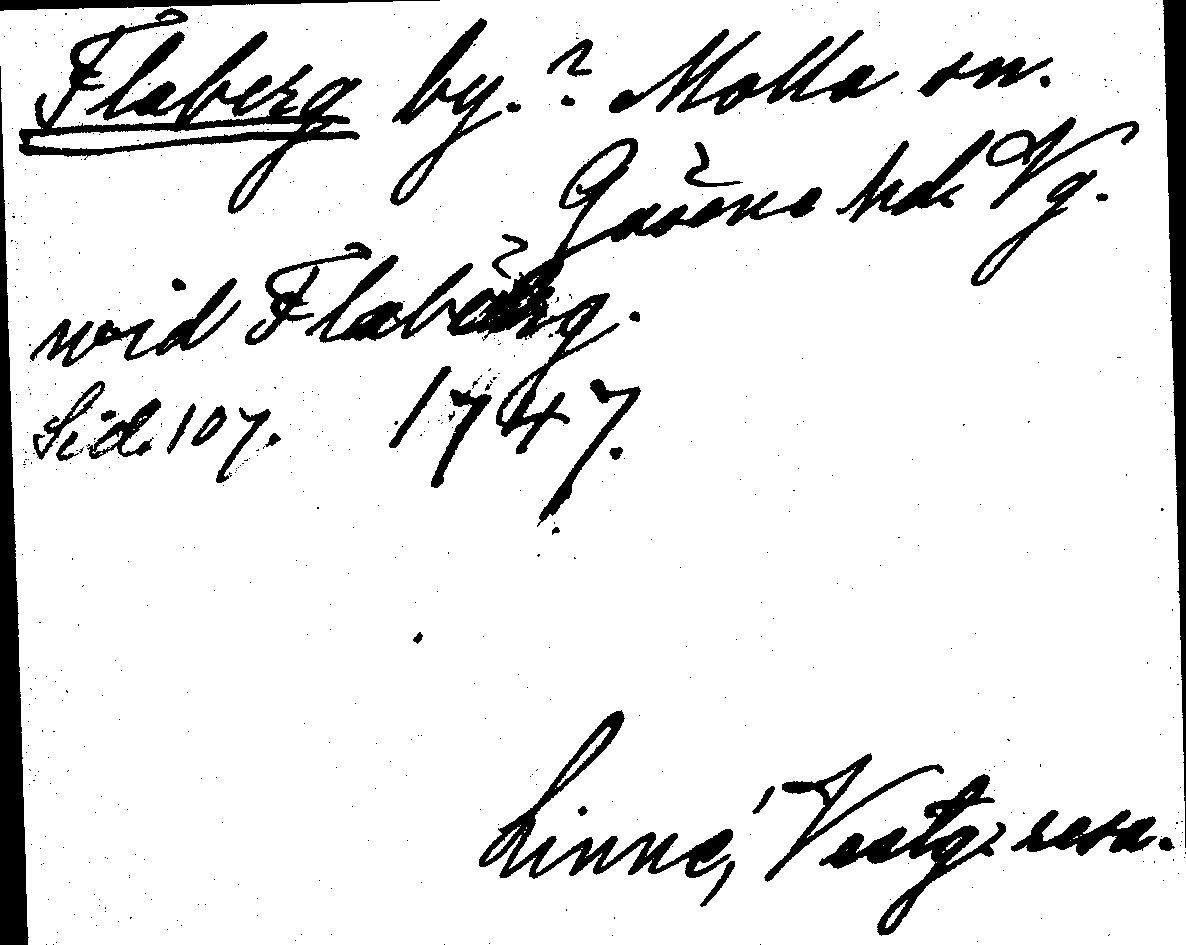 Flaberg by.? Molla sn.
Gäsene hd. Vg.
wid Flaberg.
Sid. 107. 1747.
Linné, Vestg. resa.